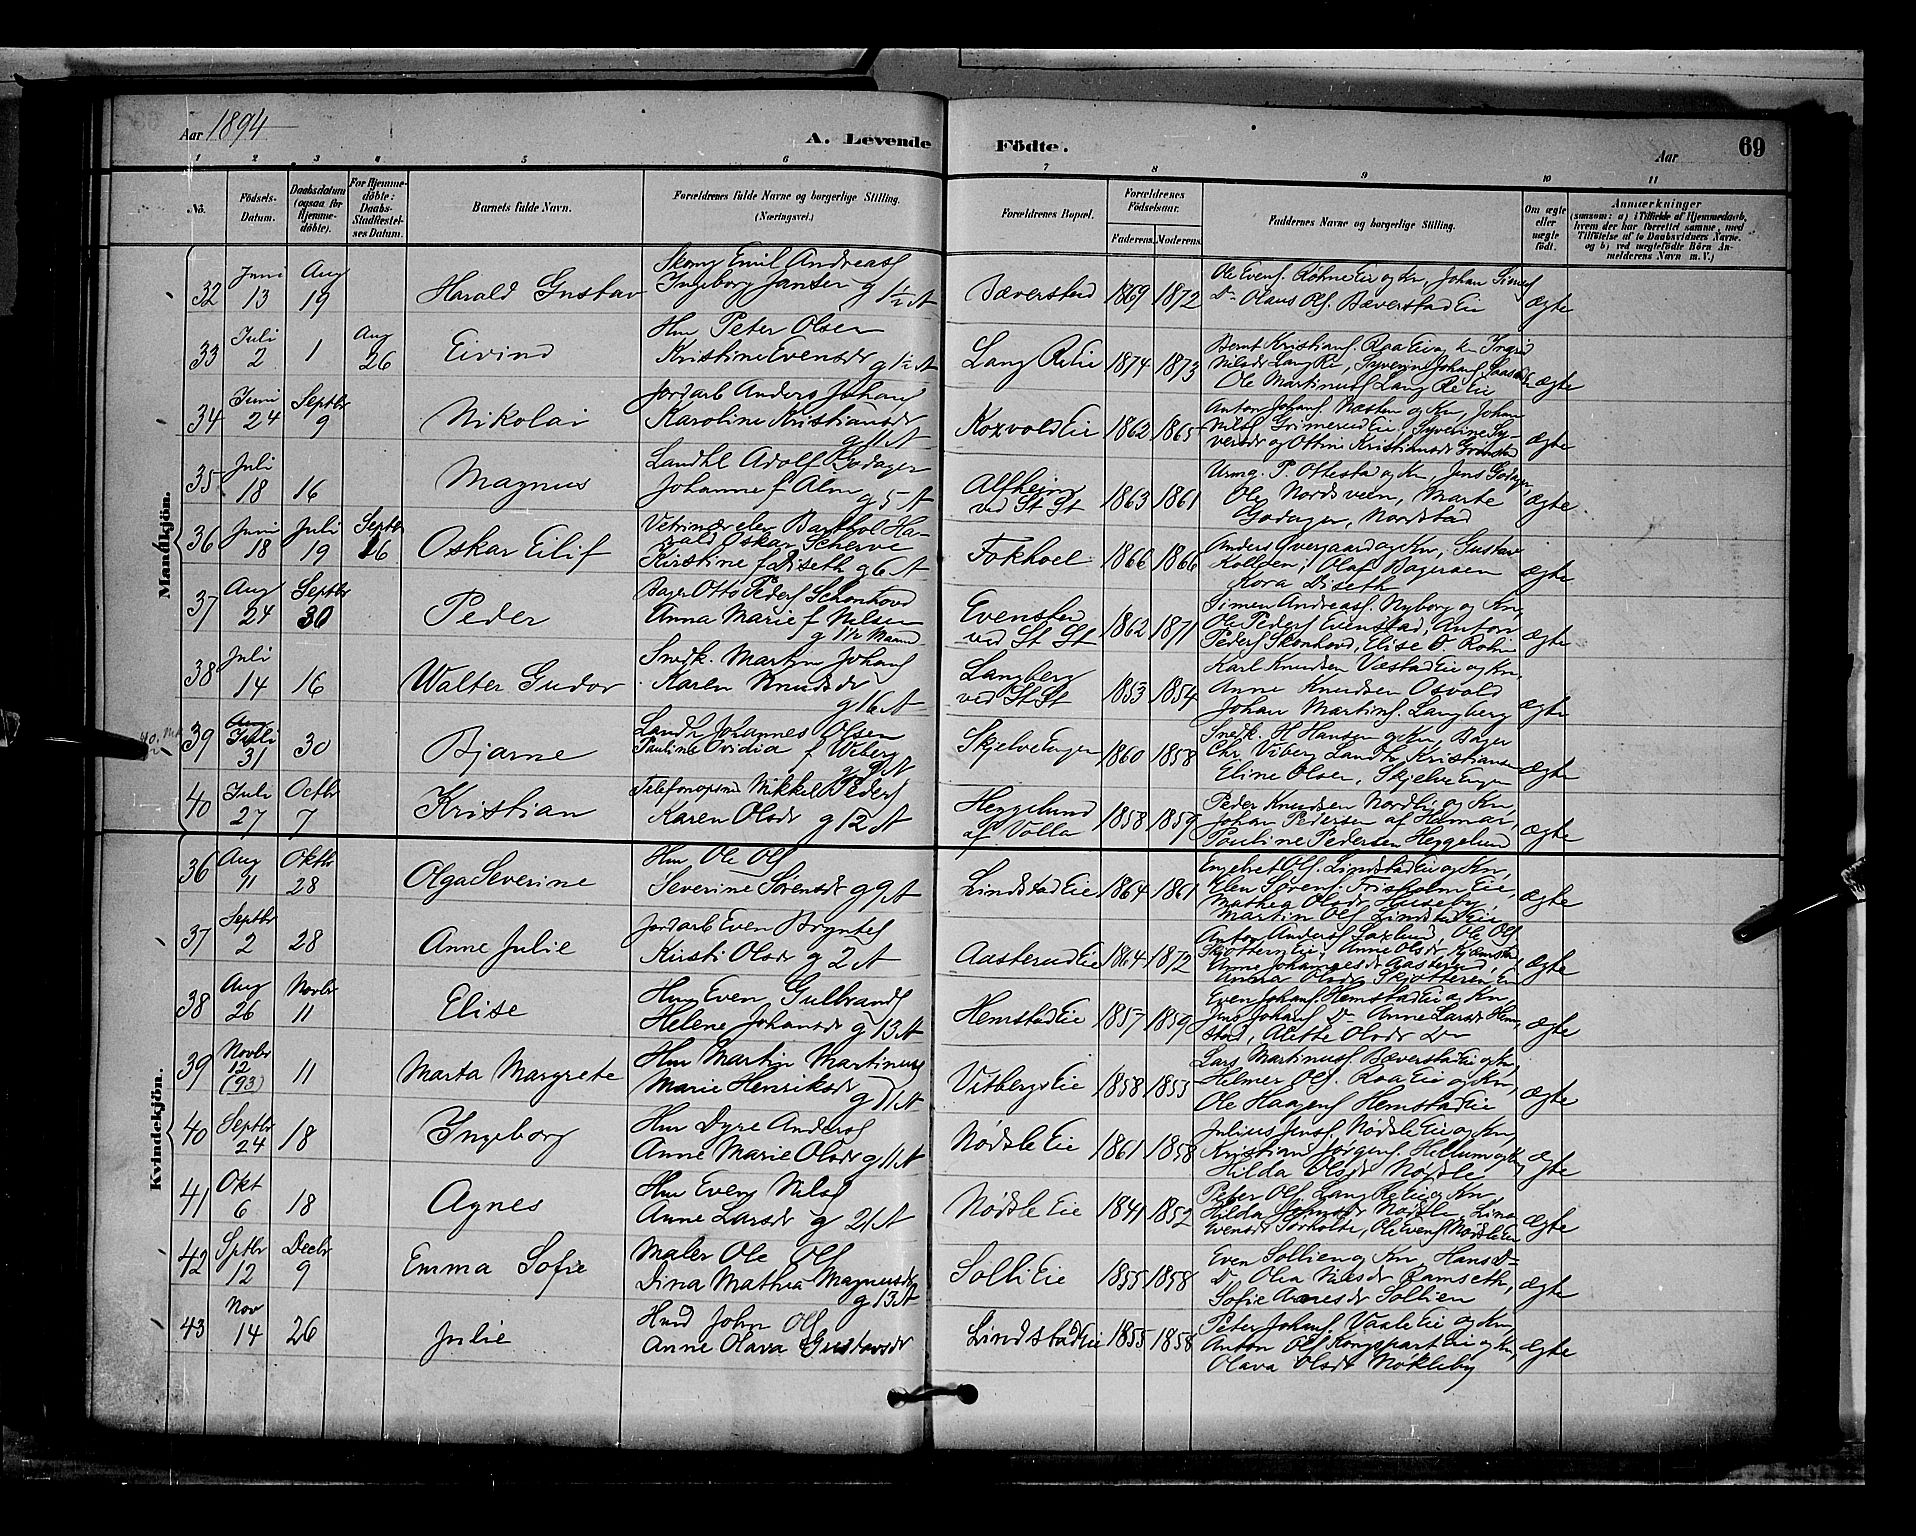 Aar 1894
A. Levende Födte.
Aar
69
1 2 3 4 5 6 7 8 9 10 11
No.
Födsels-Datum.
Daabsdatum (ogsaa for Hjemme-döbte).
For Hjemme-döbte: Daabs-Stadfæstel-ses Datum.
Barnets fulde Navn.
Forældrenes fulde Navne og borgerlige Stilling. (Næringsvei.)
Forældrenes Bopæl.
Forældrenes Födselsaar.
Faderens. Moderens.
Faddernes Navne og borgerlige Stilling.
Om ægte eller uægte födt.
Anmærkninger
(saasom: a) i Tilfælde af Hjemmedaab, hvem der har forrettet samme, med Tilföielse af to Daabsvidners Navne. og b) ved uægtefödte Börn Anmelderens Navn m. V.)
Mandkjön.
32 Juni 13 Aug 19 Harald Gustav
Skomg Emil Andreass
Ingeborg Jansen g 1½ A
Bæverstad 1869 1872
D- Olaus Ols. BæverstadEie ægte
33 Juli 2 1 Aug 26 Eivind
Hm Peter Olsen
Kristine Evensdr g 1½ A
Lang ReEie 1874 1873
Ole Martinuss Lang ReEie ægte
34 Juni 24 Septbr 9 Nikolai
Jordarb Anders Johans
Karoline Kristiansdr
g 11 A
KoxvoldEie 1862 1865
Anton Johans. Næsten og Kn, Johan
Nilss GrimerudEie, Syverine Sy-
versdr og Oftine Kristiansdr ægte
35 Juli 18 16 Magnus
Landhl Adolf Godager
Johanne f Alm g 5 A
Alfheim ved St St 1863 1861
P. Ottestad og Kn, Jens Godager,
Ole Nordsveen, Marte
Godager, Nordstad ægte
36 Juni 18 Juli 19 Septbr 26 Oskar Eilif
Vetrinærelev Barthol Ha-
rald Oskar Scherve
Kristine f Diseth g 6 A
Fokhoel 1866 1866
Anders Overgaard og Kn, Gustav
Kolden, Olaf Bageraen
Kora Diseth ægte
37 Aug 24 Septbr 30 Peder
Bager Otto Peders Skonhovd
Anna Marie f Nilsen
g 1½ Maand
Evensta ved St St 1862 1871
Simen Andreass. Nyborg og Kn,
Ole Peders Evenstad, Anton
Peders Skonhovd, Elise O. Rohn ægte
38 Juli 14 16 Walter Gudor
Snedk. Martin Johans
Karen Knudsdr
g 16 A
Langberg ved St St 1853 1854
Karl Knudsen VæstadEie og Kn,
Anne Knudsen Osvold
Johan Martins. Langberg ægte
39 Juli 31 30 Bjarne
Landh Johannes Olsen
Pauline Ovidia f Wiberg
g 9 A
SkjelveEngen 1860 1858
Snedk. H Hansen og Kn, Bager
Chr. Viberg, Landh. Kristiansen
Eline Olsen, Skjelve Engen ægte
40 Juli 27 Octbr 7 Kristian
Telefonopsm Nikkel Peders
Karen Olsdr g 12 A
Heggelund af Volla 1858 1859
Peder Knudsen Nordli og Kn,
Johan Pedersen af Hamar,
Pauline Pedersen Heggelund ægte
Kvindekjön.
36 Aug 11 Oktbr 28 Olga Severine
Hm Ole Ols
Severine Sørensdr g 9 A
LindstadEie 1864 1861
Engebret Ols. LindstadEie og Kn,
Elen Sørens. Frisholm Eie,
Mathea Olsdr Huseby,
Martin Ols LindstadEie ægte
37 Septbr 2 28 Anne Julie
Jordarb Even Bryntes
Kirsti Olsdr g 2 A
AasterudEie 1864 1872
Anton Anders Saxlund, Ole Ols
SkjøtternEie, Anne Olsdr
Anne Johannesdr Aasterud,
Anna Olsdr Skjøtteren Eie ægte
38 Aug 26 Novbr 11 Elise
Hm Even Gulbrands
Helene Johansdr g 13 A
HemstadEie 1857 1859
Even Johans. HemstadEie og Kn,
Jens Johans D- Anne Larsdr Hem-
stad, Alette Olsdr D- ægte
39 Novbr 12 (93) 11 Marta Margrete
Hm Martin Martinus
Marie Henriksdr
g 11 A
VitbergsEie 1858 1855
Lars Martinuss. BæverstadEie og Kn,
Helmer Ols. RoaEie og Kn,
Ole Haagens HemstadEie ægte
40 Septbr 24 18 Ingeborg
Hm Dyre Anders
Anne Marie Olsdr g 11 A
NødsleEie 1861 1858
Julius Jenss. NødsleEie og Kn,
Kristian Jørgens. Hellum og Kn,
Hilda Olsdr Nøjdsle ægte
41 Okt 6 18 Agnes
Hm Even Nilss
Anne Larsdr g 21 A
NødsleEie 1841 1852
Peter Ols. Lang ReEie og Kn,
Hilda Johnsdr Nøjdsle, Lina
Evensdr Sørholte, Ole Evens NødsleEie ægte
42 Sptbr 12 Decbr 9 Emma Sofie
Maler Ole Ols
Dina Mathea Magnusdr
g 13 A
SolliEie 1855 1858
Even Sollien og Kn, Hans D-
D- Olea Nilsdr Ramseth,
Sofie Arnesdr Sollien ægte
43 Nov 14 26 Julie
Husd John Ols
Anne Olava Gustavsdr
LindstadEie 1855 1858
Peter Johans VaaleEie og Kn
Anton Ols KongspartEie og Kn,
Olava Olsdr Nøkleby ægte